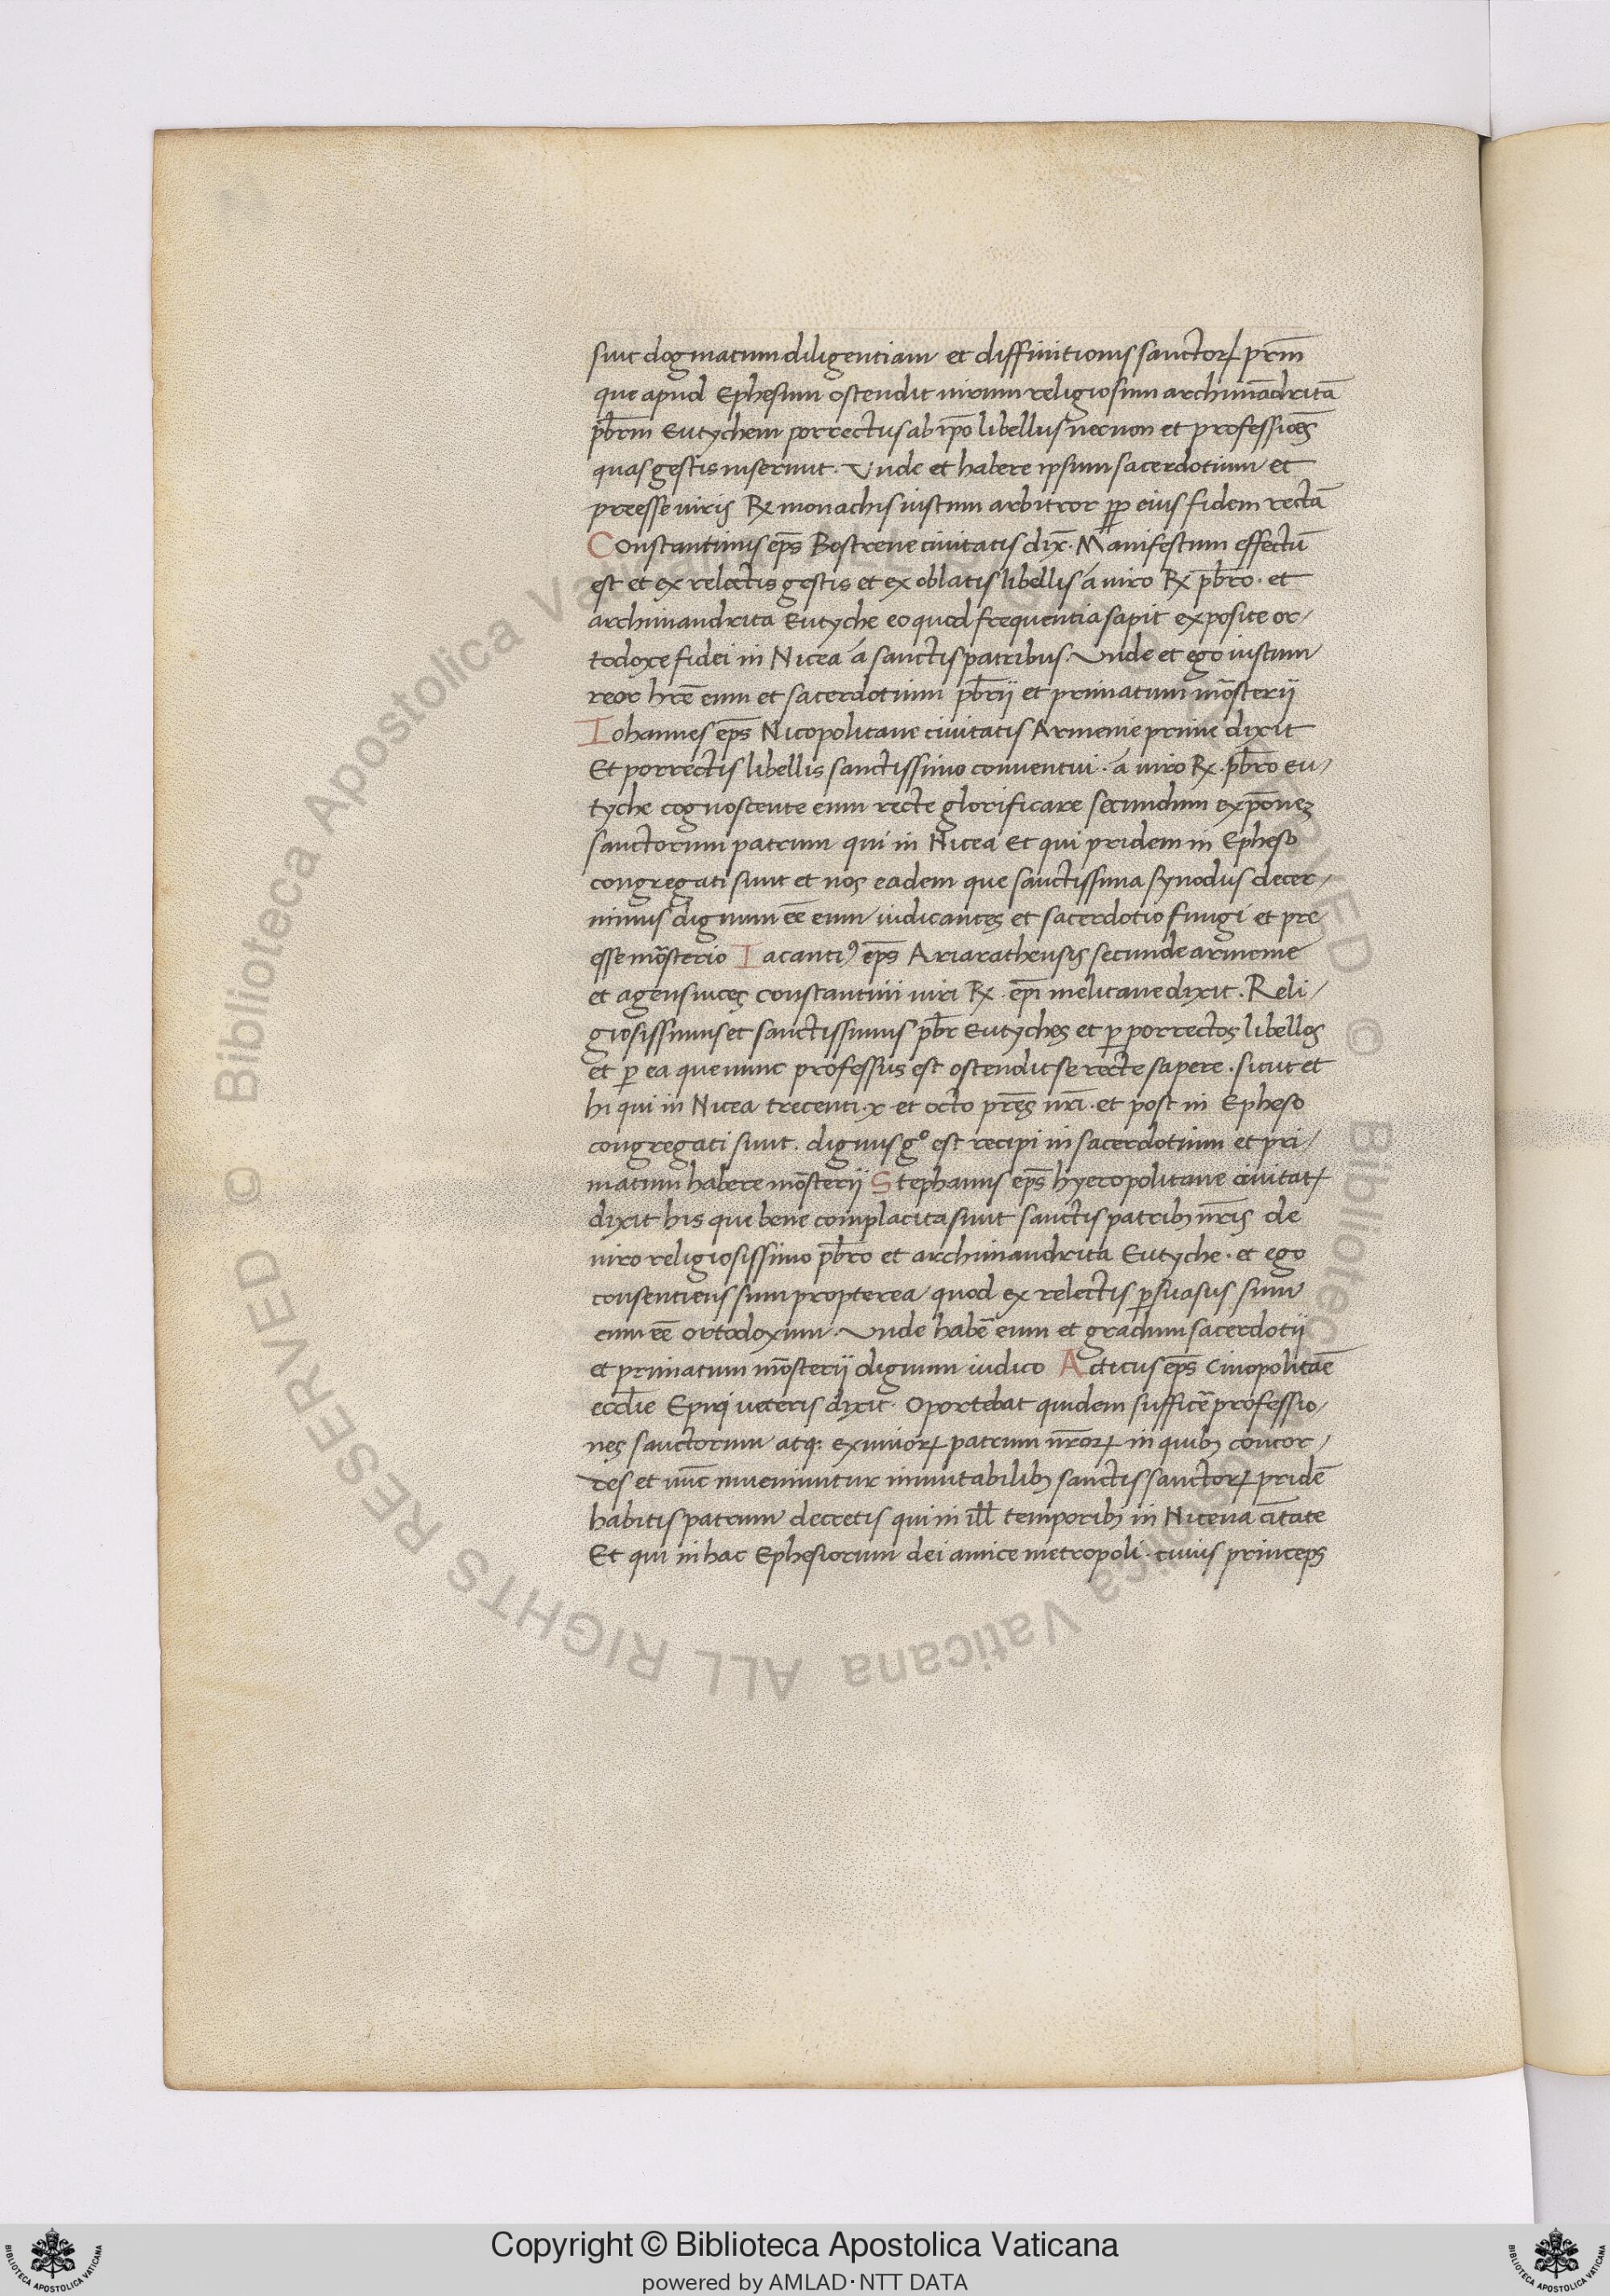 sunt dogmatum diligentiam et diffinitionis sanctoꝝ pr̄m
que apud Ephesum ostendit uirum religiosum archimādritā
pb̄rm Eutychem porrectus ab ip̄o libellus necnon et professiōes
quas gestis inserunt. Vnde et habere ipsum sacerdotium et
preesse uiris Rx monachis iustum arbitror ꝓp eius fidem rectā
Constantinus ep̄s Bostrene ciuitatis dix̄. Manifestum effectū
est et ex relectis gestis et ex oblatis libellis á uiro Rx pb̄ro. et
archimandrita Eutyche eo quod frequentia sapit exposite or/
todoxe fidei in Nicea á sanctis patribus. Vnde et ego iustum
reor hr̄e eum et sacerdotium pb̄rij et primatum mōsterij
Iohannes ep̄s Nicopolitane ciuitatis Armenie prime dixit
Et porrectis libellis sanctissimo conuentui. á uiro Rx. pb̄ro Eu/
tyche cognoscente eum recte glorificare secundum exp̄onez
sanctorum patrum qui in Nicea Et qui pridem in Epheso
congregati sunt et nos eadem que sanctissima synodus decer/
nimus dignum eē eum iudicantes et sacerdotio fungi et pre/
esse mōsterio Iacantiꝰ ep̄s Ariarathensis secunde armenie
et agens uices constantini uiri Rx. ep̄i melitane dixit. Reli/
giosissimus et sanctissimus pb̄r Eutyches et ꝑ porrectos libellos
et ꝑ ea que nunc professus est ostendit se recte sapere. sicut et
hi qui in Nicea trecenti. x. et octo pr̄es nr̄i. et post in Epheso
congregati sunt. dignus gº est recipi in sacerdotium et pri/
matum habere mōsterij Stephanus ep̄s hyeropolitane ciuitatꝭ
dixit his que bene complacita sunt sanctis patribꝫ nr̄is de
uiro religiosissimo pb̄ro et archimandrita Eutyche. et ego
consentiens sum propterea quod ex relectis ꝑsuasus sum
eum eē ortodoxum. Vnde habē eum et gradum sacerdotij
et primatum mōsterij dignum iudico Acticus ep̄s Cinopolitāe
eccl̄ie Epiri ueteris dixit. Oportebat quidem sufficē professio/
nes sanctorum atqꝫ eximioꝝ patrum nr̄oꝝ in quibꝫ concor/
des et nūc inueniuntur inmutabilibꝫ sanctis sanctoꝝ pridē
habitis patrum decretis qui in ill̄ temporibꝫ in Nicena cīitate
Et qui in hac Ephesiorum dei amice metropoli. cuius princeps
© Biblioteca Apostolica Vaticana ALL RIGHTS RESERVED
Copyright © Biblioteca Apostolica Vaticana
powered by AMLAD·NTT DATA